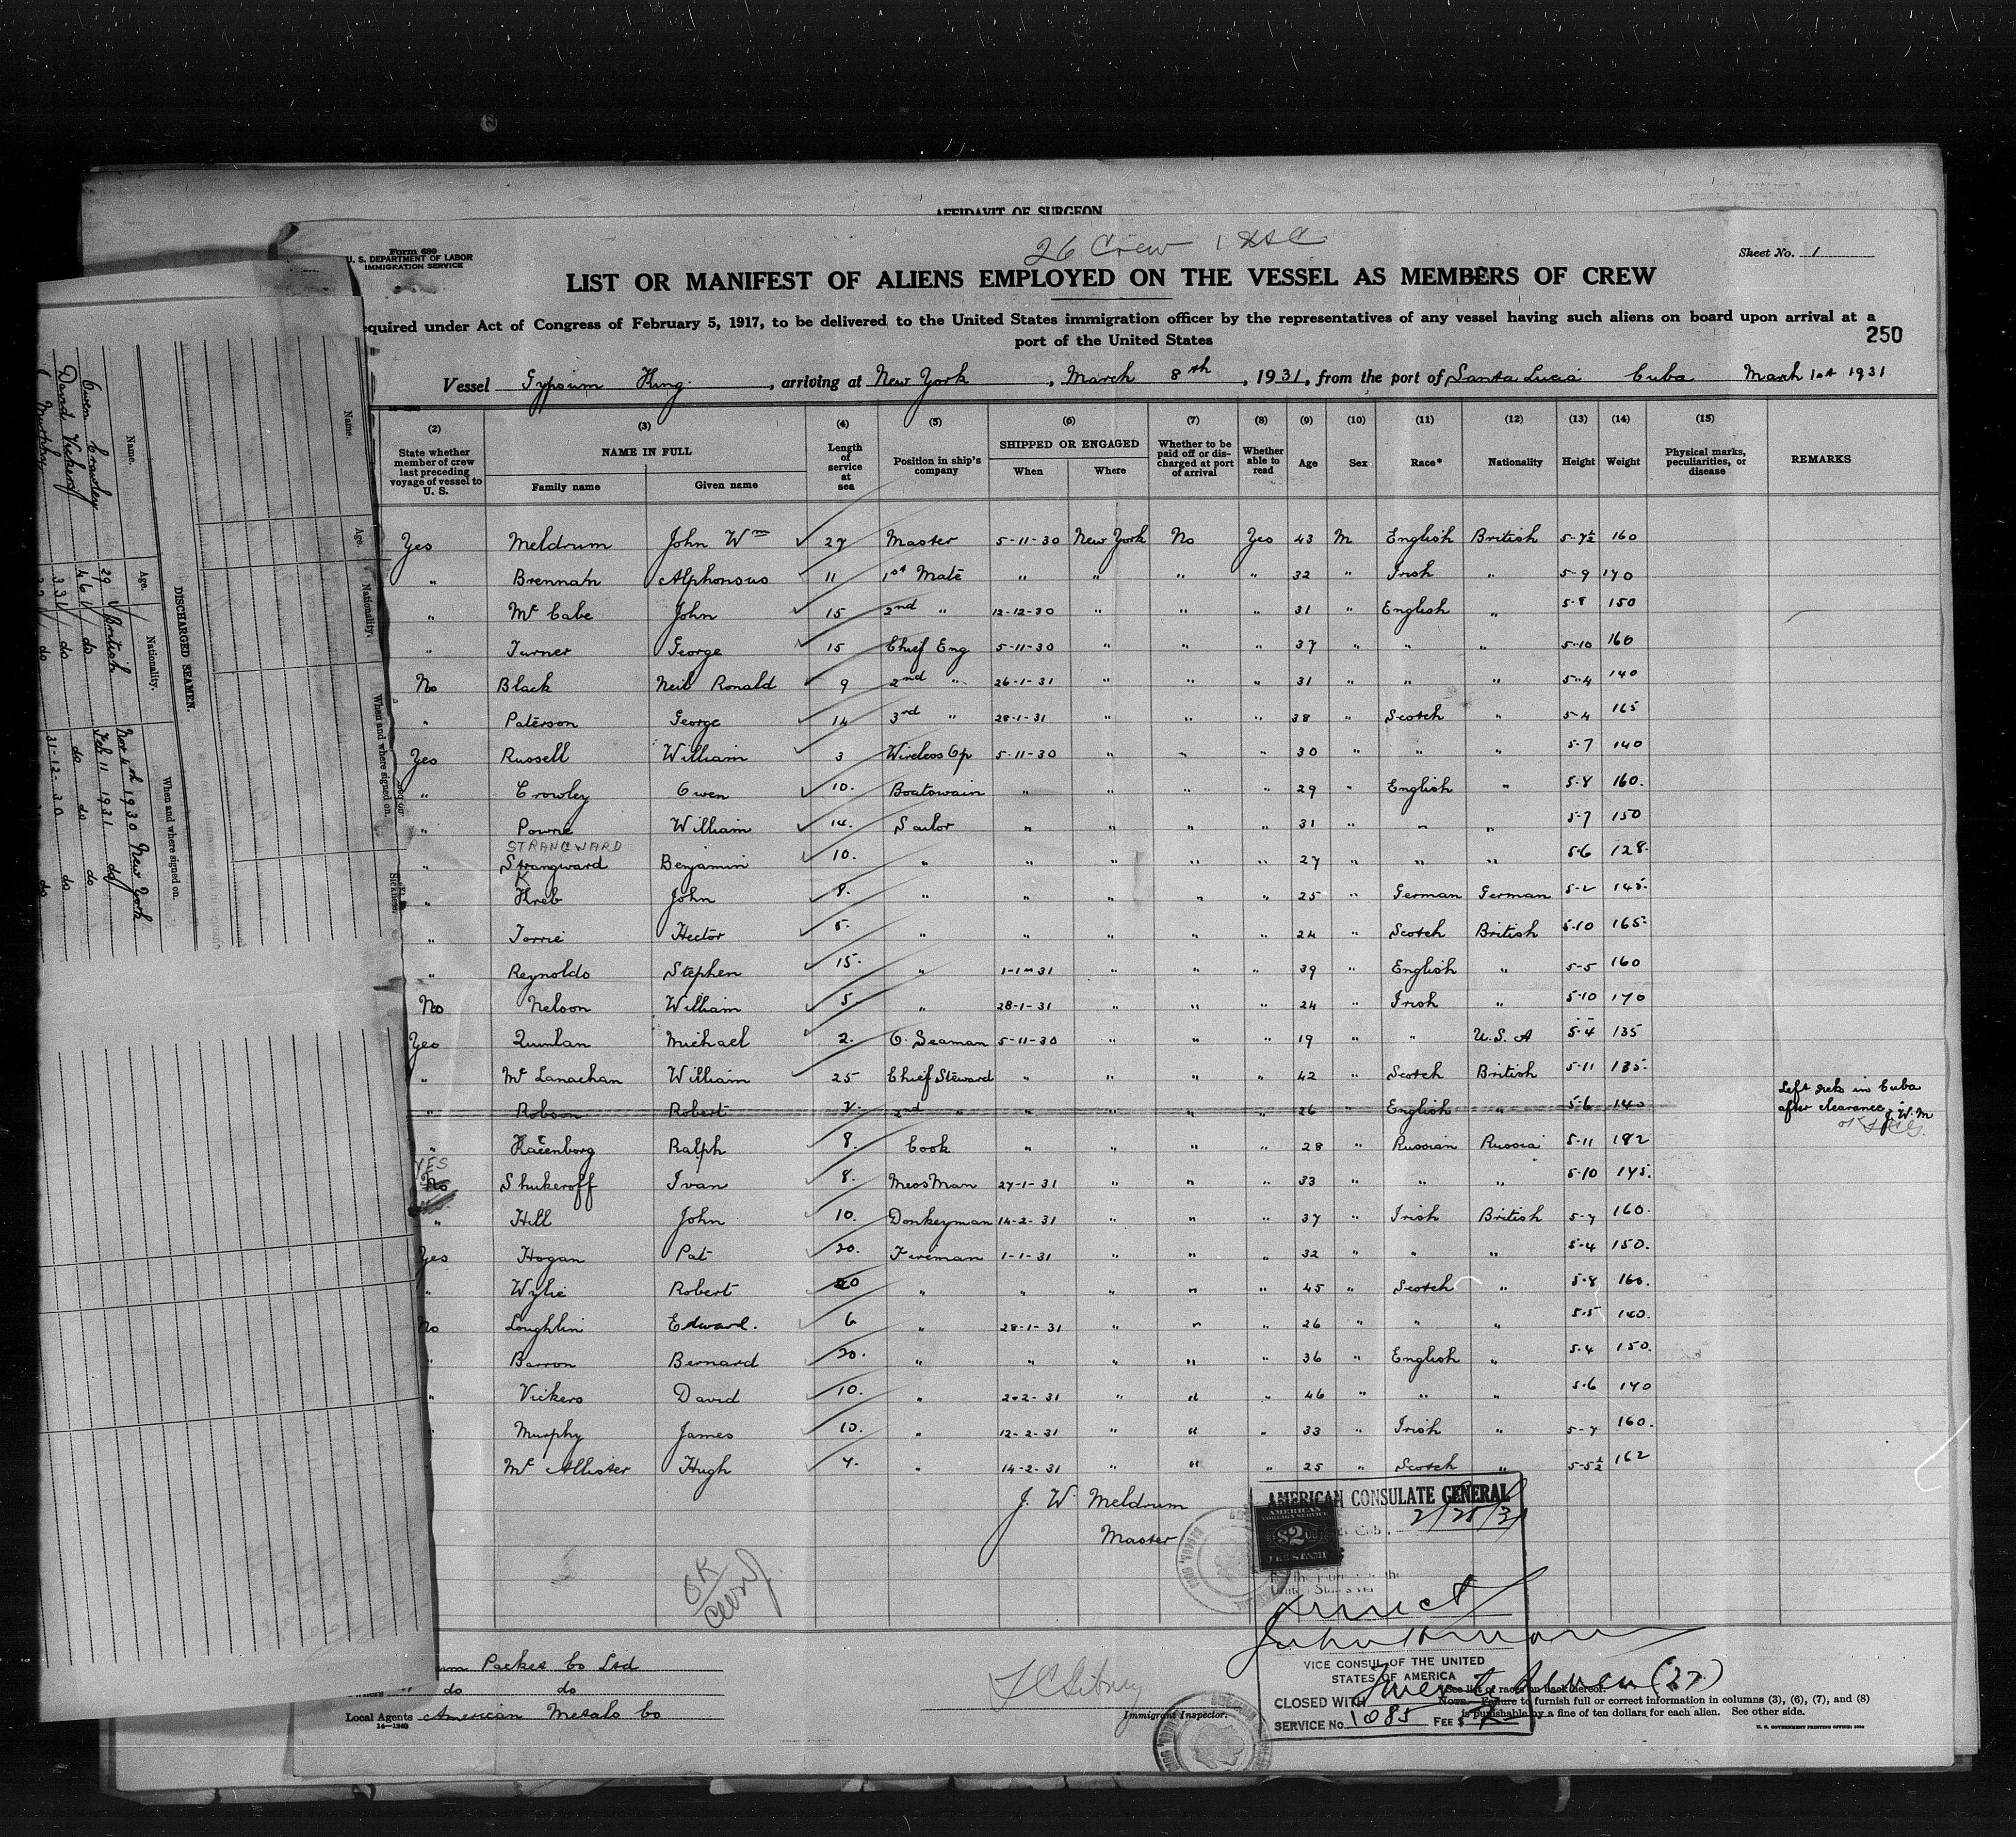 AFFIDAVIT OF SURGEON
26 Crew 1
Form 680
U. S. DEPARTMENT OF LABOR
IMMIGRATION SERVICE
Sheet No. 1
LIST OR MANIFEST OF ALIENS EMPLOYED ON THE VESSEL AS MEMBERS OF CREW
equired under Act of Congress of February 5, 1917, to be delivered to the United States immigration officer by the representatives of any vessel having such aliens on board upon arrival at a
port of the United States
250
Vessel Gypsum King, arriving at New York, March 8th, 1931, from the port of Santa Lucia Cuba March 1st 1931
(2) (3) (4) (5) (6) (7) (8) (9) (10) (11) (12) (13) (14) (15)
State whether member of crew last preceding voyage of vessel to U. S. NAME IN FULL Family name Given name Length of service at sea Position in ship's company SHIPPED OR ENGAGED When Where Whether to be paid off or discharged at port of arrival Whether able to read Age Sex Race* Nationality Height Weight Physical marks, peculiarities, or disease REMARKS
Yes Meldrum John Wm 27 Master 5-11-30 New York No Yes 43 M English British 5-7½ 160
" Brennan Alphonsus 11 1st Mate " " " " 32 " Irish " 5-9 170
" Mc Cabe John 15 2nd " 12-12-30 " " " 31 " English " 5-8 150
" Turner George 15 Chief Eng 5-11-30 " " " 37 " " " 5-10 160
No Black Neil Ronald 9 2nd " 26-1-31 " " " 31 " " " 5-4 140
" Paterson George 14 3rd " 28-1-31 " " " 38 " Scotch " 5-4 165
Yes Russell William 3 Wireless Op 5-11-30 " " " 30 " " " 5-7 140
" Crowley Owen 10. Boatswain " " " " 29 " English " 5-8 160.
" Powne William 14. Sailor " " " " 31 " " " 5-7 150
STRANGWARD
" Strangward Benjamin 10. " " " " " 27 " " " 5-6 128.
K
" Kreb John 8. " " " " " 25 " German German 5-2 145.
" Torrie Hector 5. " " " " " 24 " Scotch British 5-10 165.
" Reynolds Stephen 15. " 1-1-31 " " " 39 " English " 5-5 160
No Nelson William 5. " 28-1-31 " " " 24 " Irish " 5-10 170
Yes Quinlan Michael 2. O. Seaman 5-11-30 " " " 19 " " U.S.A 5-4 135
" Mc Lanachan William 25 Chief Steward " " " " 42 " Scotch British 5-11 135.
" Robson Robert 2. 2nd " " " " " 26 " English " 5-6 140 Left sick in Cuba
after clearance J.W.M
" Ralph 8. Cook " " " " 28 " Russian Russia 5-11 182
YES
No Shukeroff Ivan 8. Mess Man 27-1-31 " " " 33 " " " 5-10 145.
" Hill John 10. Donkeyman 14-2-31 " " " 37 " Irish British 5-7 160.
Yes Hogan Pat 20. Fireman 1-1-31 " " " 32 " " " 5-4 150.
" Wylie Robert 20 " " " " " 45 " Scotch " 5-8 160.
No Loughlin Edward. 6 " 28-1-31 " " " 26 " " " 5-5 140.
" Barron Bernard 20. " " " " " 36 " English " 5-4 150.
" Vickers David 10. " 2-2-31 " " " 46 " " " 5-6 170
" Murphy James 10. " 12-2-31 " " " 33 " Irish " 5-7 160.
" Mc Allister Hugh 7. " 14-2-31 " " " 25 " Scotch " 5-5½ 162
J. W. Meldrum
Master
OK
AMERICAN CONSULATE GENERAL
2/28/31
AMERICAN
FOREIGN SERVICE
$2.00
FEE STAMP
Direct
VICE CONSUL OF THE UNITED
STATES OF AMERICA
CLOSED WITH Twenty Seven (27)
SERVICE No. 1085 FEE $2
Packet Co Ltd
Owners do do
Local Agents American Metals Co
14-1240
Immigrant Inspector.
*See list of races on back hereof.
NOTE.—Failure to furnish full or correct information in columns (3), (6), (7), and (8)
is punishable by a fine of ten dollars for each alien. See other side.
U. S. GOVERNMENT PRINTING OFFICE
Name. Age. Nationality. When and where signed on.
DISCHARGED SEAMEN.
Name. Age. Nationality. When and where signed on.
Owen Crowley 29 British Nov 4th 1930 New York
David Vickers 46 do Feb 11 1931 do
Murphy 33 do do do
do 31-12-30 do